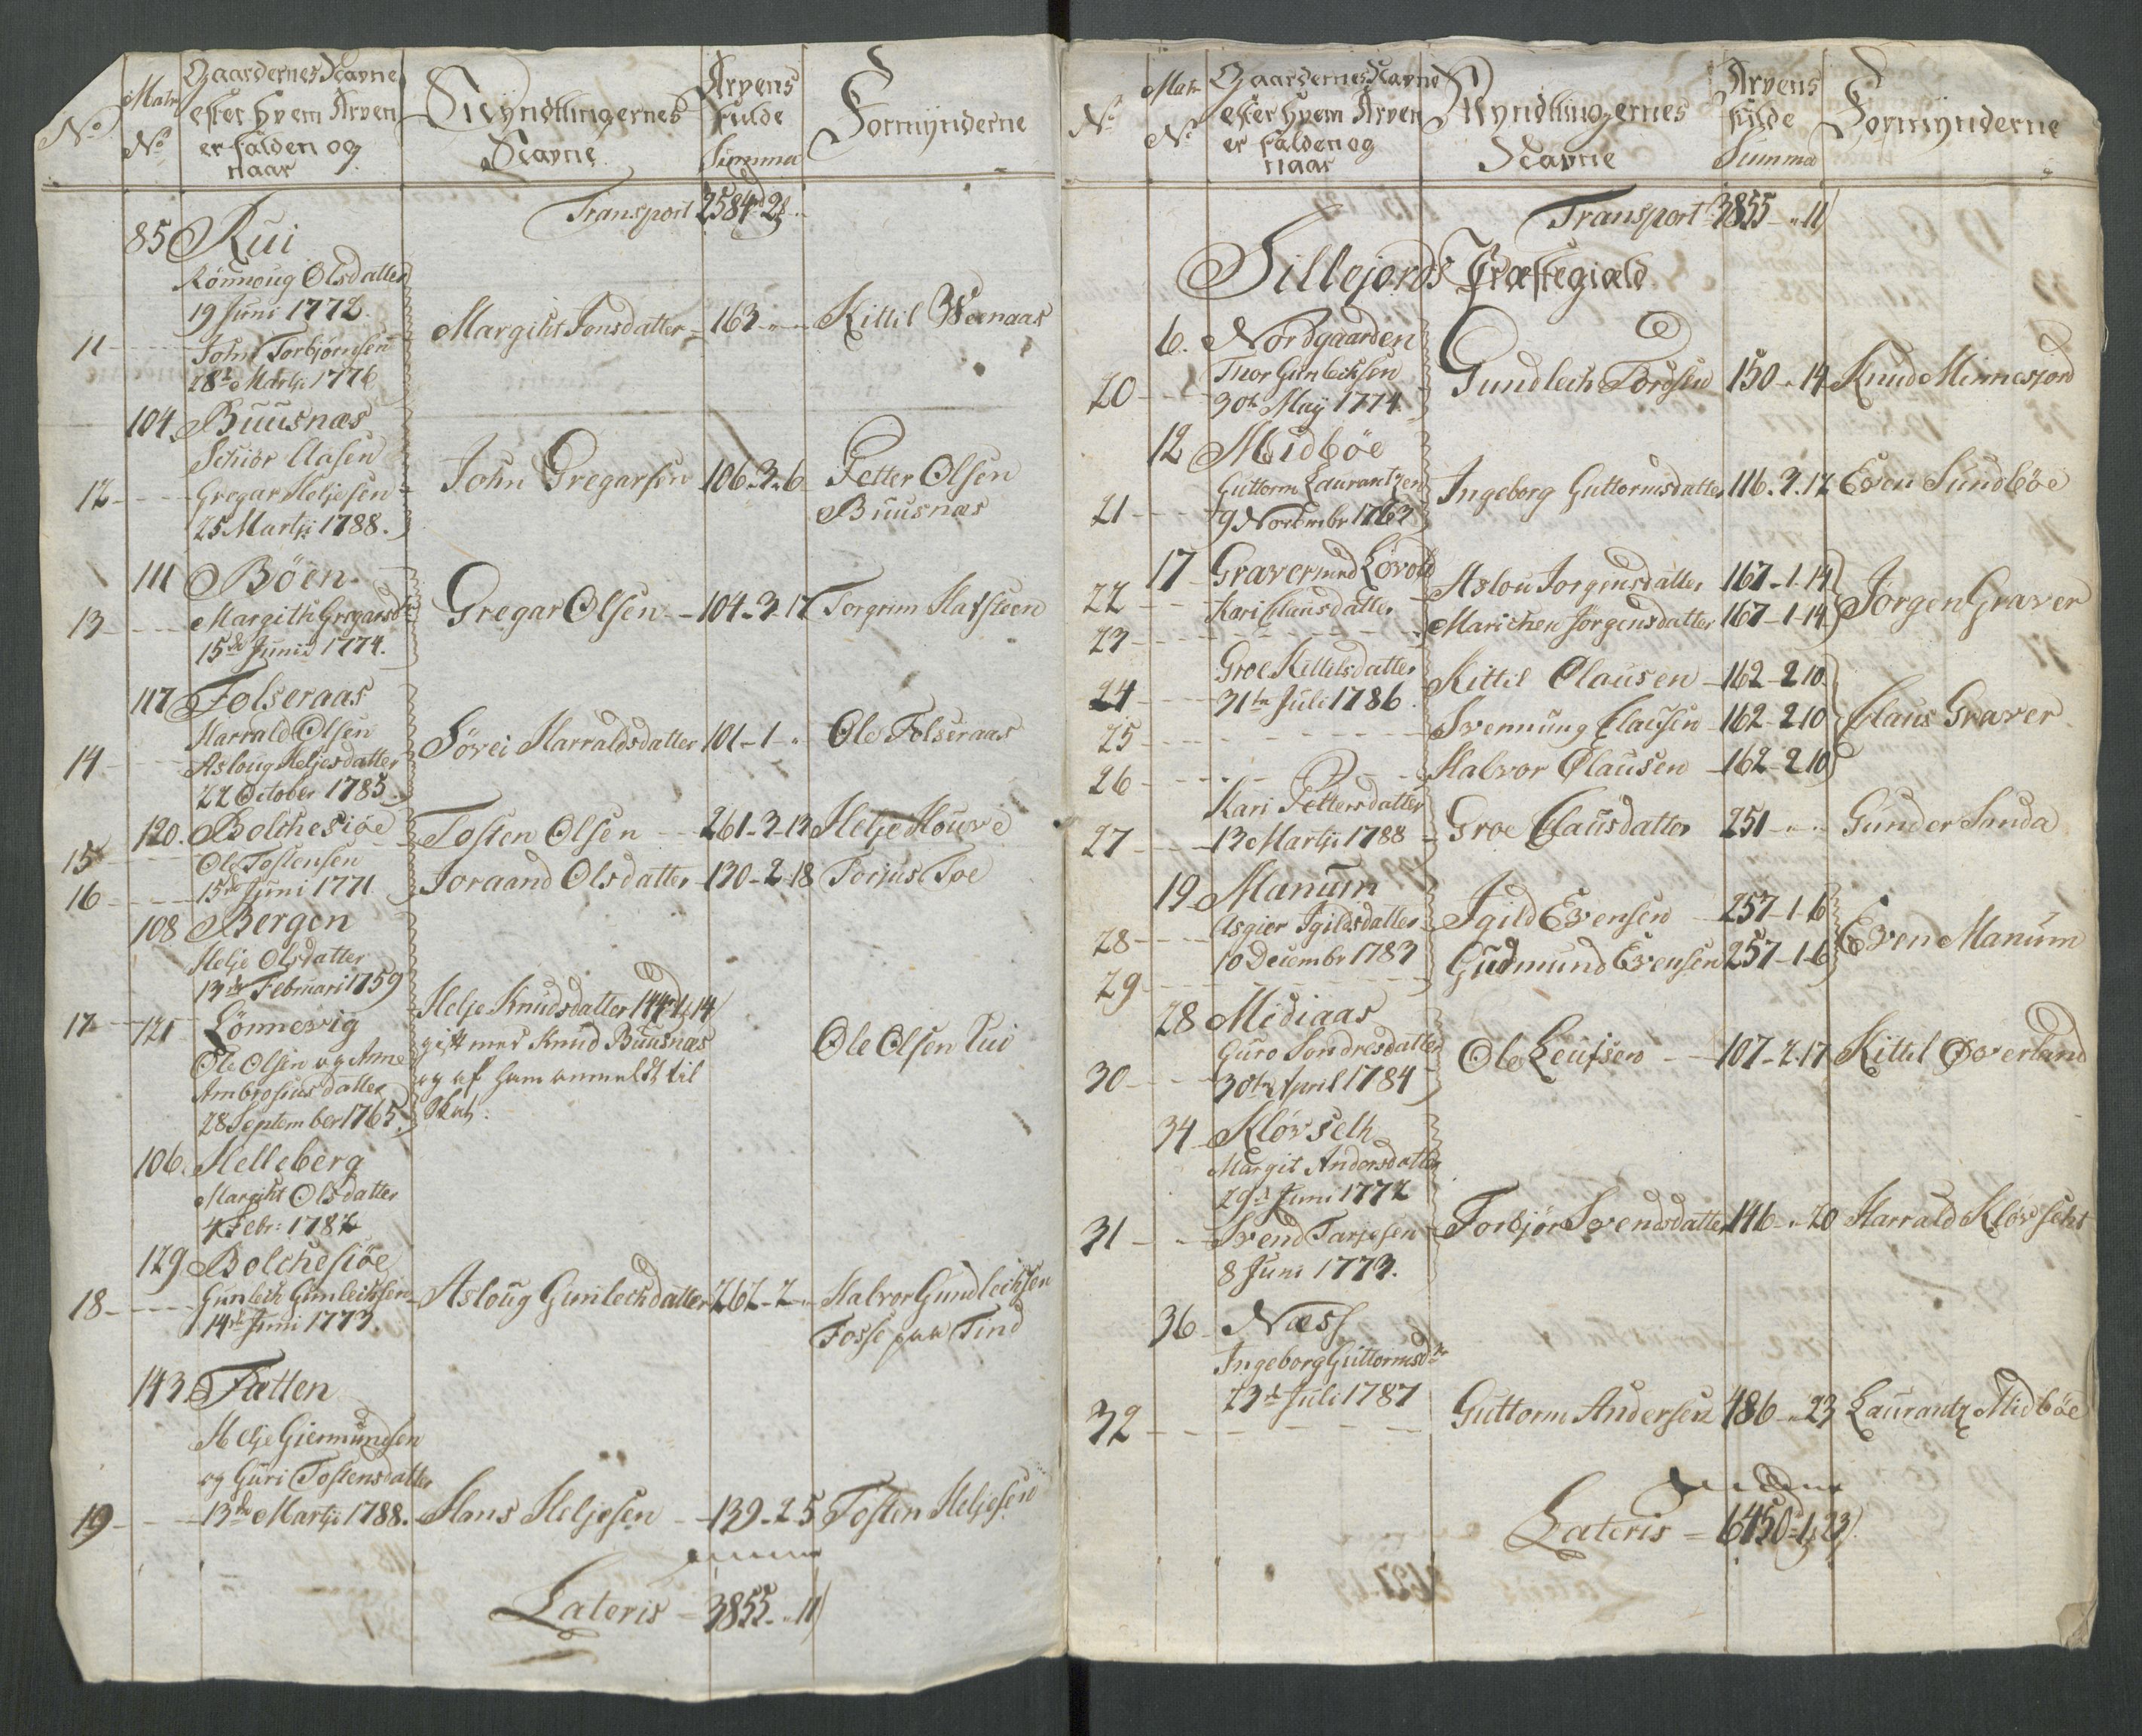 No Matr No Gaardernes Navne efter hvem Arven er falden og naar Myndtlingernes Navne Arvens fulde Summa Formynderne
Transport 2584 rd 2
85 Rui
Rönnoug Olsdatter
19 Juni 1772.
11 John Torbjörnsen Margiht Jonsdatter 163 - " - Kittil Weenaas
28de Martji 1776
104. Buusnæs
Schiör Aasen
12 Gregar Heljesen John Gregarsen 106. 3. 6 Petter Olsen
25 Martji 1788. Buusnæs
111 Böen
13 Margith Gregarsdtr Gregar Olsen 104. 3. 17 Torgrim Hafsteen
15de Junii 1774.
117 Folseraas
Harrald Olsen
14 Asloug Heljesdatter Sörei Harraldsdatter 101 - 1 - " Ole Folseraas
22 October 1785
120. Bolchesiöe Tosten Olsen 261 - 3 - 13 Helje Houve
15 Ole Tostensen
16 15de Juni 1771 Joraand Olsdatter 130 - 2 - 18 Torjus Toe
108 Bergen
Helje Olsdatter
13de Februari 1759
Helje Knudsdatter 144 rd 1 14
17 121 Lönnevig gift med Knud Buusnæs Ole Olsen Rui
Ole Olsen og Anne og af ham anmeldt til
Ambrosius datter
28 September 1765.
106. Helleberg
Margiht Olsdatter
4 Febr: 1782
129 Bolchesiöe
18 Gunlech Gunlechsen Asloug Gunlechdatter 262 - 2 - " Halvor Gundlechsen
14de Juni 1773. Fosse paa Tind
143. Fætten
Helje Giermundsen
og Guri Tostensdatter
19 13de Martji 1788. Hans Heljesen 139 - 2 - 5 Tosten Heljesen
Lateris 3855 - " 11
No Matr No Gaardernes Navne efter hvem Arven er falden og naar Myndtlingernes Navne Arvens fulde Summa Formynderne
Transport 3855 - " 11
Sillejords Præstegiæld
6. Nordgaarden
20 Thor Gunlechsen Gundlech Tordsen 150 - " 14 Knud Minnesjord
30te May 1774.
12 Midböe
Guttorm Laurantzen Ingeborg Guttormsdatter 116. 2. 12 Even Sundböe
21 9 Novembr 1763
17 Graver med Lövold
22 Kari Clausdatter Aslou Jorgensdatter 167 - 1. 14 Jörgen Graver
23 Marichen Jörgensdatter 167 - 1. 14
Groe Kittilsdatter
24 31te Juli 1786. Kittil Clausen 162 - 2 10
25 Svennung Clausen 162 - 2 10 Claus Graver
26 Halvor Clausen 162 - 2 10
Kari Pettersdatter
27 13 Martji 1788 Groe Clausdatter 251 - " - " Gunder Sunda
19 Manum
28 Asgier Igildsdatter Igild Evensen 257 - 1 - 6 Even Manum
10 Decembr 1783
29 Gudmund Evensen 257 - 1 - 6
28 Mediaas
Guro Sondresdatter
30 30te April 1784 Ole Leufsen 107 - 2. 17 Kittil Överland
34 Klövseth
Margit Andersdatter
29de Juni 1772
31 Svend Tarjesen Torbjör Svendsdatter 146 - " 20 Harrald Klövseht
8 Juni 1773.
36 Næss
Ingeborg Guttormsdtr
23de Juli 1787
32 Guttorm Andersen 486 - " 23 Laurantz Midböe
Lateris 6450 - 1 23